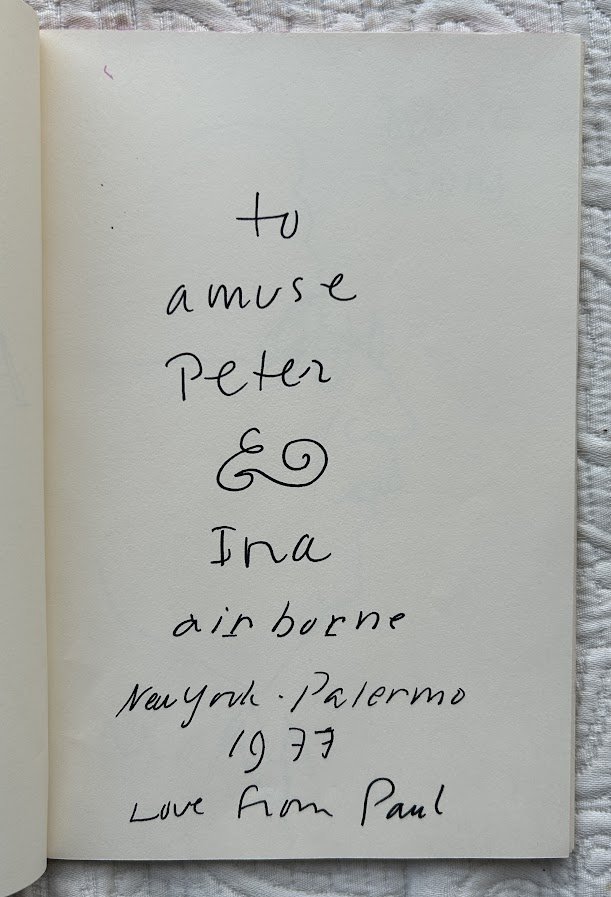 to
amuse
Peter
&
Ina
airborne
New York · Palermo
1977
Love from Paul